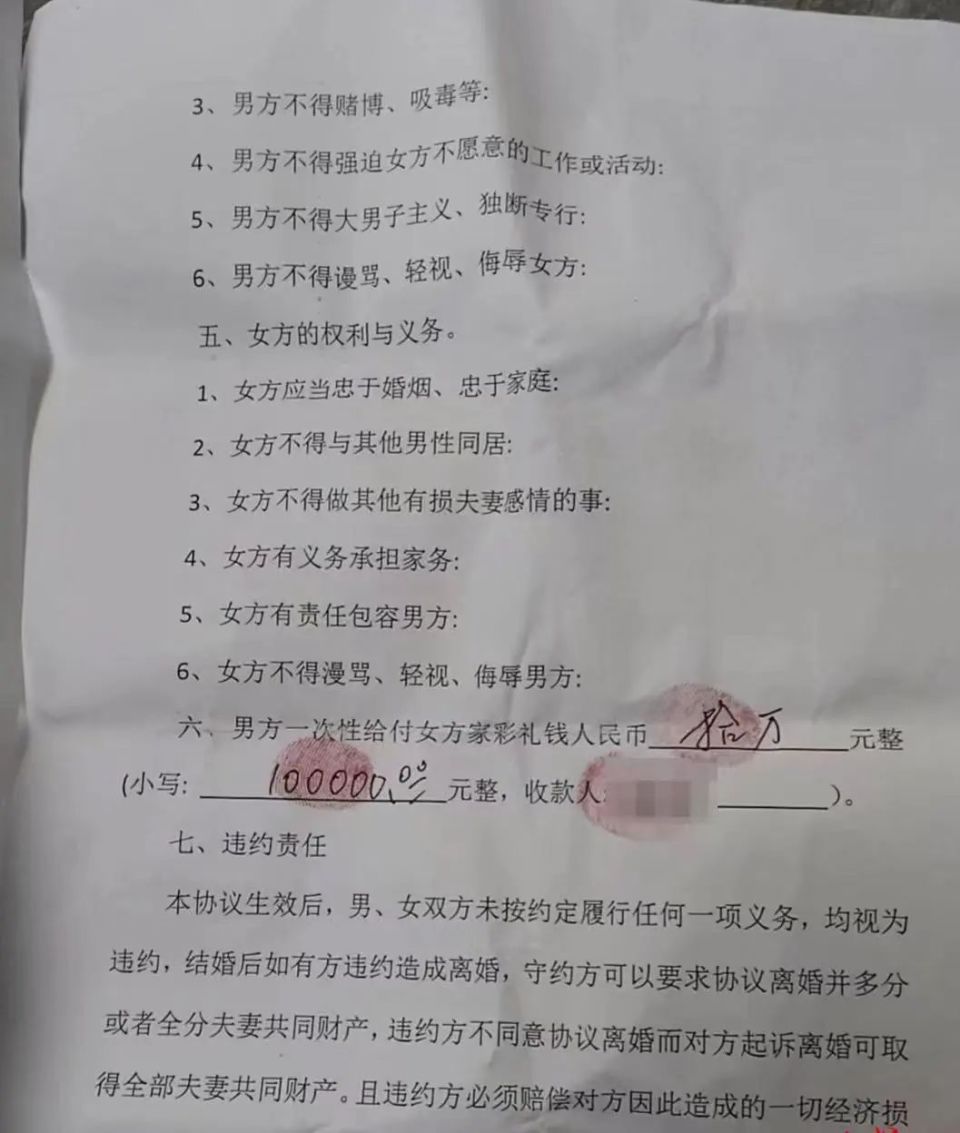 3、男方不得赌博、吸毒等:
4、男方不得强迫女方不愿意的工作或活动:
5、男方不得大男子主义、独断专行:
6、男方不得谩骂、轻视、侮辱女方:
五、女方的权利与义务。
1、女方应当忠于婚烟、忠于家庭:
2、女方不得与其他男性同居:
3、女方不得做其他有损夫妻感情的事:
4、女方有义务承担家务:
5、女方有责任包容男方:
6、女方不得漫骂、轻视、侮辱男方:
六、男方一次性给付女方家彩礼钱人民币 拾万 元整
(小写: 100000.00 元整，收款人: )。
七、违约责任
本协议生效后，男、女双方未按约定履行任何一项义务，均视为
违约，结婚后如有方违约造成离婚，守约方可以要求协议离婚并多分
或者全分夫妻共同财产，违约方不同意协议离婚而对方起诉离婚可取
得全部夫妻共同财产。且违约方必须赔偿对方因此造成的一切经济损